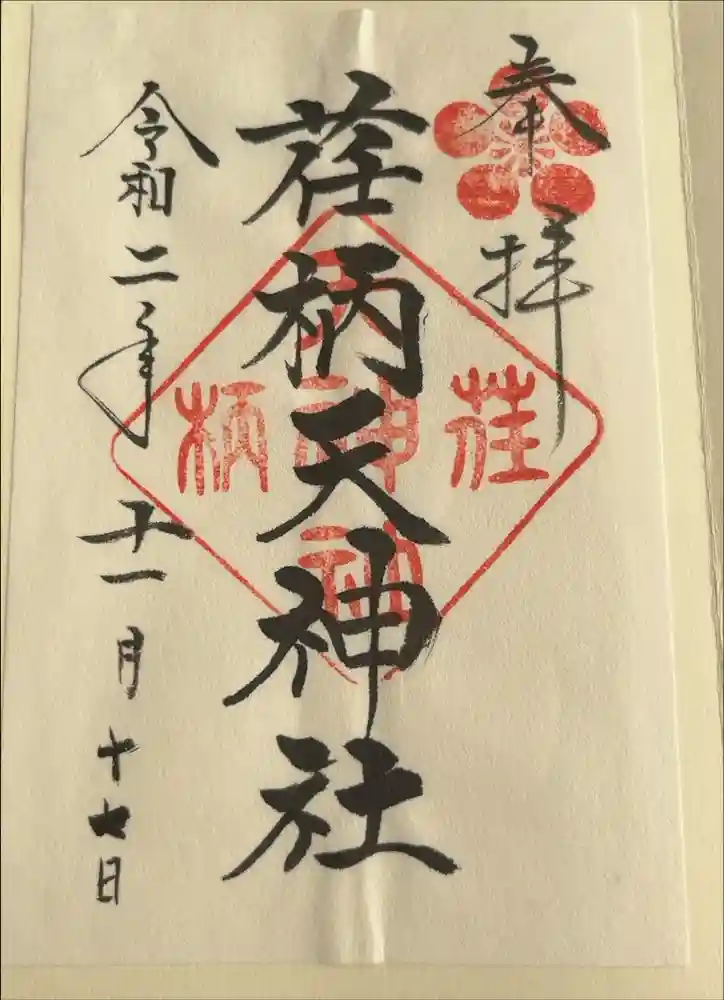 奉拝
荏柄天神社
令和二年十一月十七日
荏
天
神
社
柄